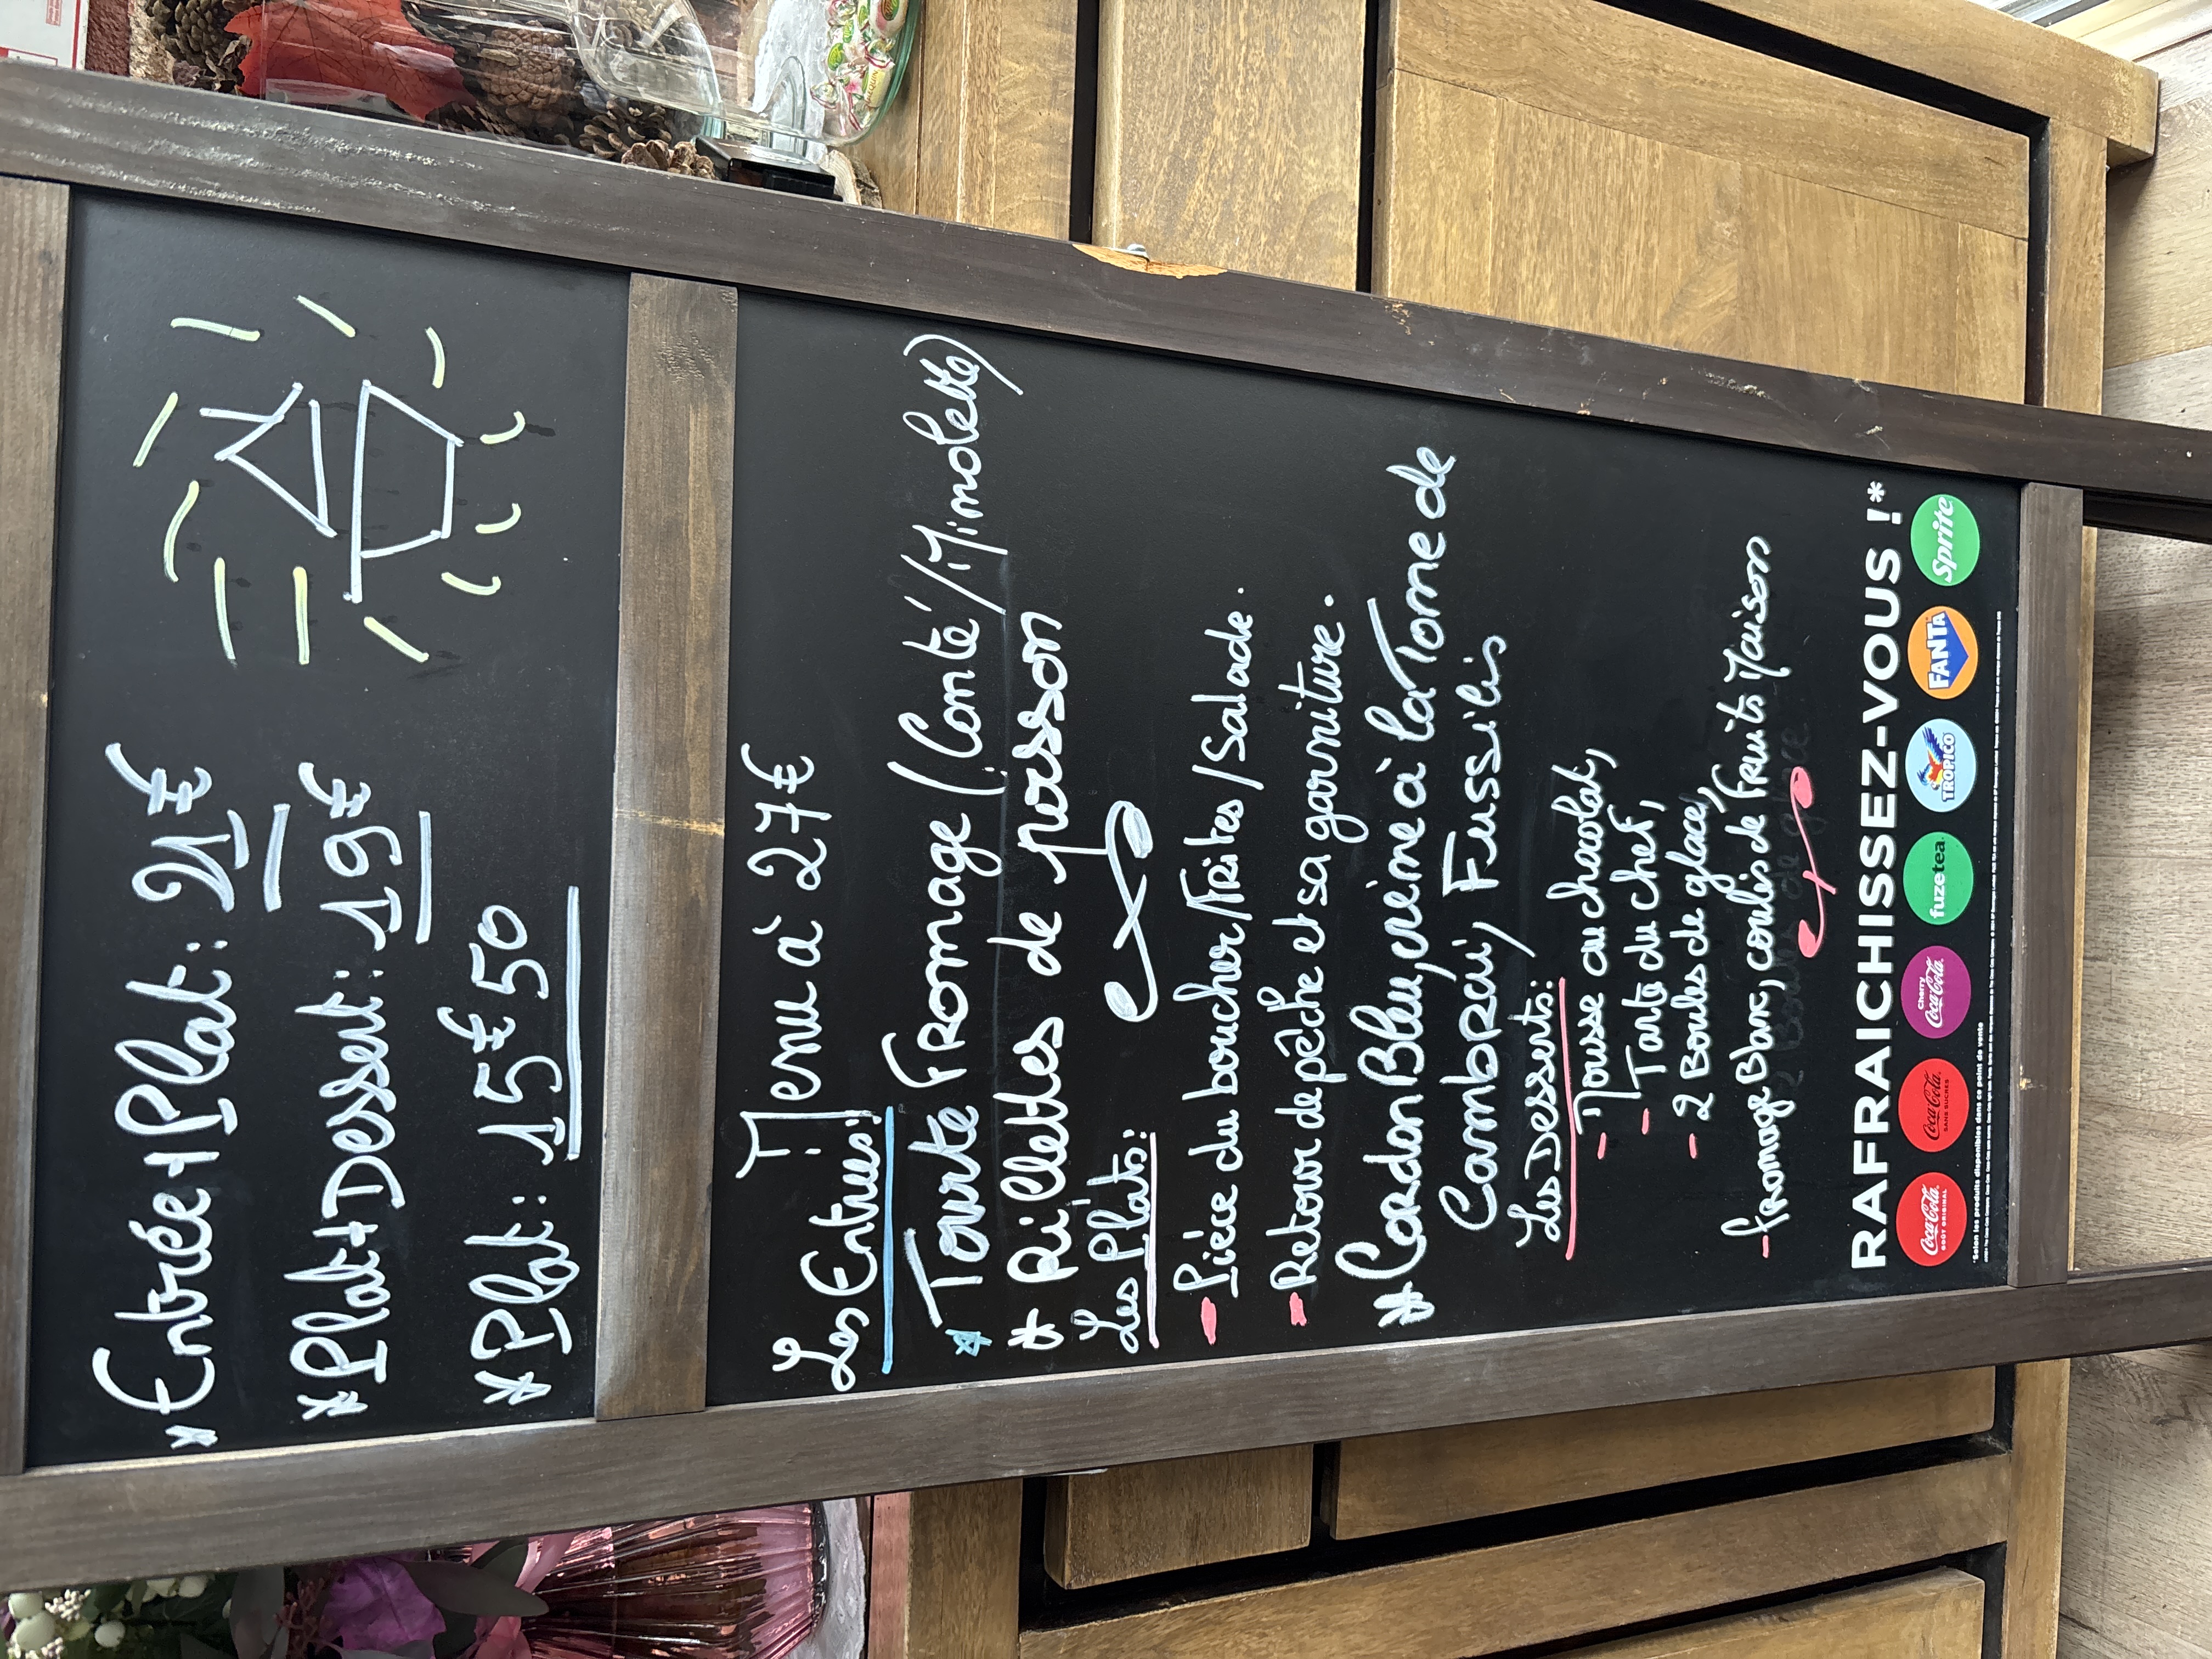 * Entrée + Plat : 21€
* Plat + Dessert : 19€
* Plat : 15€50
Menu à 27€
Les Entrées :
* Tourte Fromage (Comté/Mimolette)
* Rillettes de poisson
Les Plats :
- Pièce du boucher/Frites/Salade.
- Retour de pêche et sa garniture.
* Cordon Bleu, crème à la Tome de
Cambrai, Fussilis
Les Desserts :
- Mousse au chocolat,
- Tarte du chef,
- 2 Boules de glace,
- fromage Blanc, coulis de Fruits Maison
RAFRAICHISSEZ-VOUS !*
Coca-Cola GOÛT ORIGINAL
Coca-Cola SANS SUCRES
Cherry Coca-Cola
fuzetea
TROPICO
FANTA
Sprite
*Selon les produits disponibles dans ce point de vente